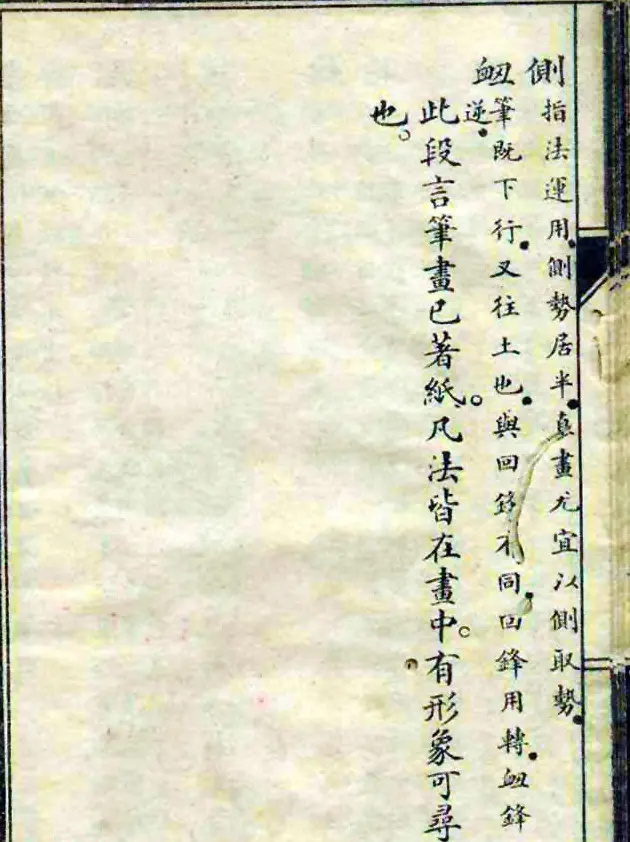 側指法運用。側勢居半。直畫尤宜以側取勢。
衄筆既下行。又往土也。與回鋒不同。回鋒用轉。衄鋒
逆。
此段言筆畫已著紙。凡法皆在畫中。有形象可尋
也。